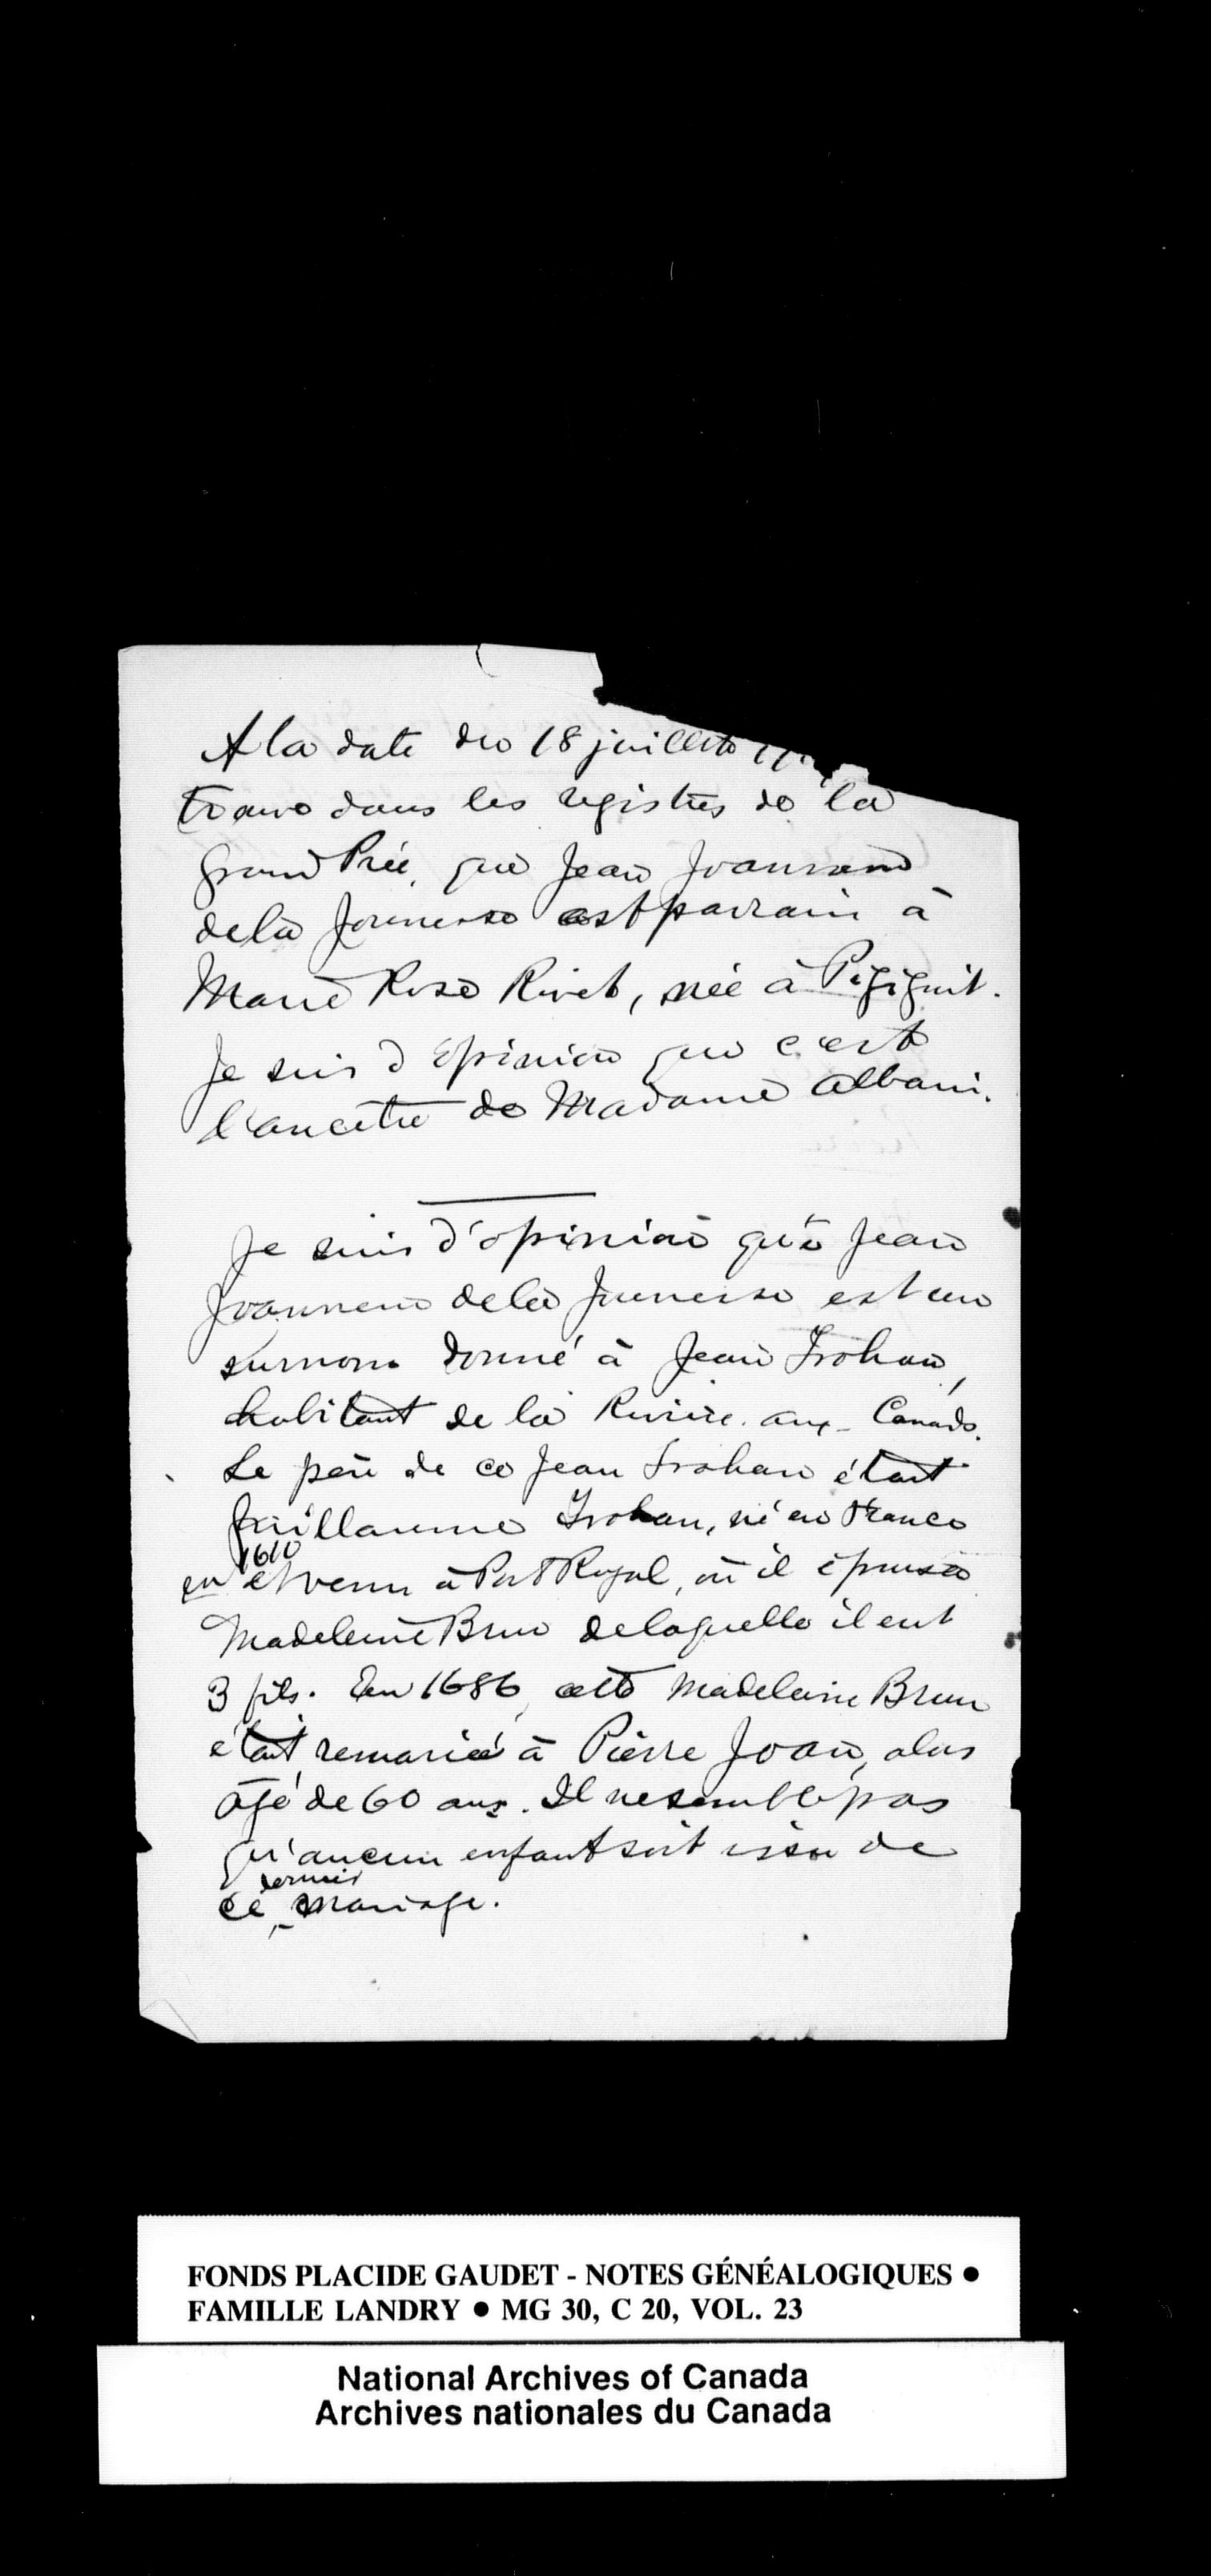 A la date du 18 juillet 17
trouve dans les registres de la
Grand Prée, que Jean Joannem
de la Jeunesse est parrain à
Marie Rose Rivet, née à Pigiguit.
Je suis d'opinion que c'est
l'ancêtre de Madame Albani.
Je suis d'opinion que Jean
Joannem de la Jeunesse est un
surnom donné à Jean Trohan,
habitant de la Rivière-aux-Canards.
Le père de ce Jean Trohan était
Guillaume Trohan, né en France
en 1610 et venu à Port Royal, où il épousa
Madeleine Brun de laquelle il eut
3 fils. En 1686, cette Madeleine Brun
était remariée à Pierre Joan, alors
âgé de 60 ans. Il ne semble pas
qu'aucun enfant soit issu de
ce dernier mariage.
FONDS PLACIDE GAUDET - NOTES GÉNÉALOGIQUES ●
FAMILLE LANDRY ● MG 30, C 20, VOL. 23
National Archives of Canada
Archives nationales du Canada